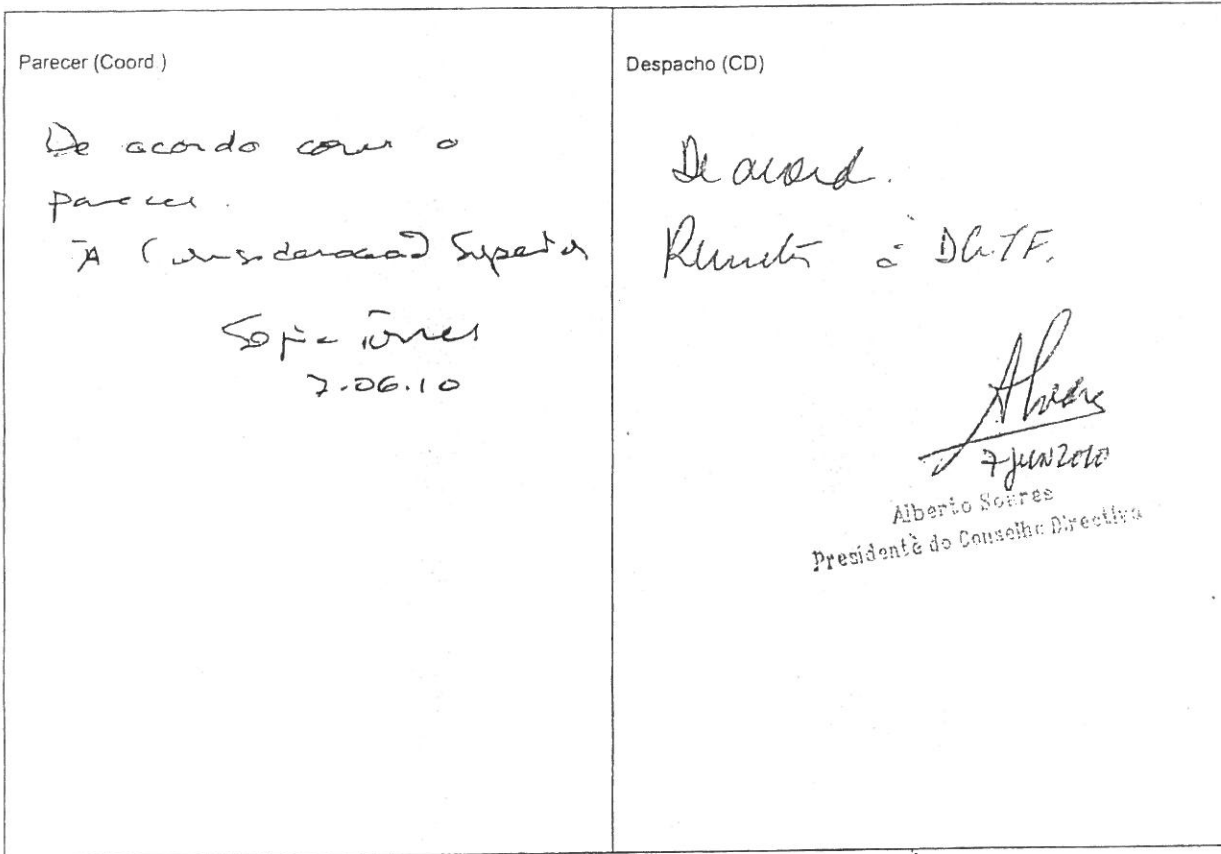 Parecer (Coord )
De acordo com o
parecer.
À Consideração Superior
Sofia Torres
7.06.10
Despacho (CD)
De acord.
à DGTF.
7 JUN 2010
Alberto Soares
Presidente do Conselho Directivo